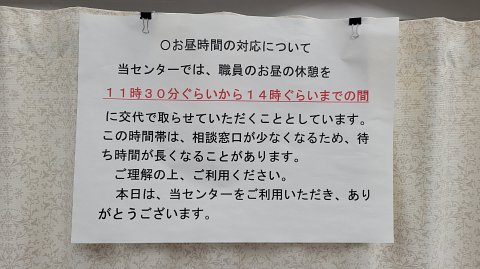 ○お昼時間の対応について
当センターでは、職員のお昼の休憩を
11時30分ぐらいから14時ぐらいまでの間
に交代で取らせていただくこととしています。
この時間帯は、相談窓口が少なくなるため、待
ち時間が長くなることがあります。
ご理解の上、ご利用ください。
本日は、当センターをご利用いただき、あり
がとうございます。